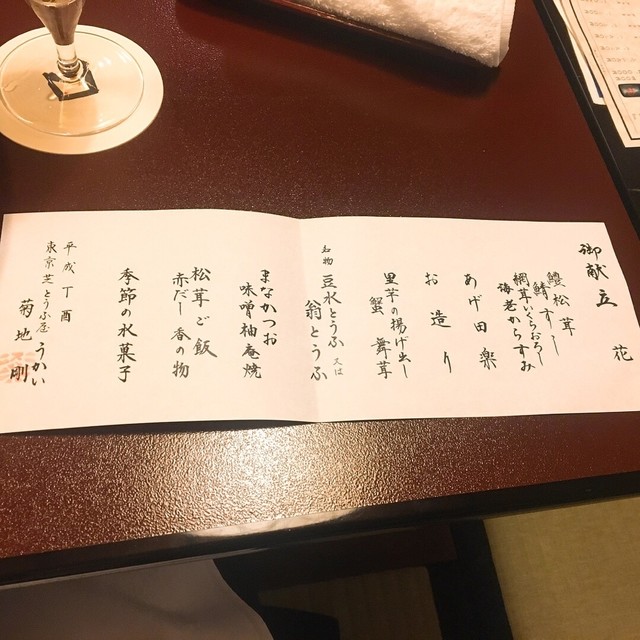 御献立
花
鱧松茸
鯖すし
網茸いくらおろし
海老からすみ
あげ田楽
お造り
里芋の揚げ出し
蟹 舞茸
名物 豆水とうふ 又は
翁とうふ
まなかつお
味噌柚庵焼
松茸ご飯
赤だし 香の物
季節の水菓子
平成丁酉
東京芝とうふ屋うかい
菊地 剛